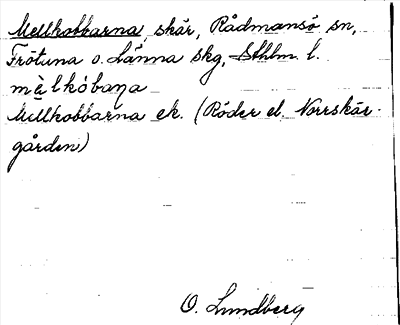 Mellkobbarna, skär, Rådmansö sn,
Fröluna o. Länna skg, Sthlm l.
mèlkóbaɳa
Mellkobbarna ek. (Röder el. Norrskär-
gården)
O. Lundberg